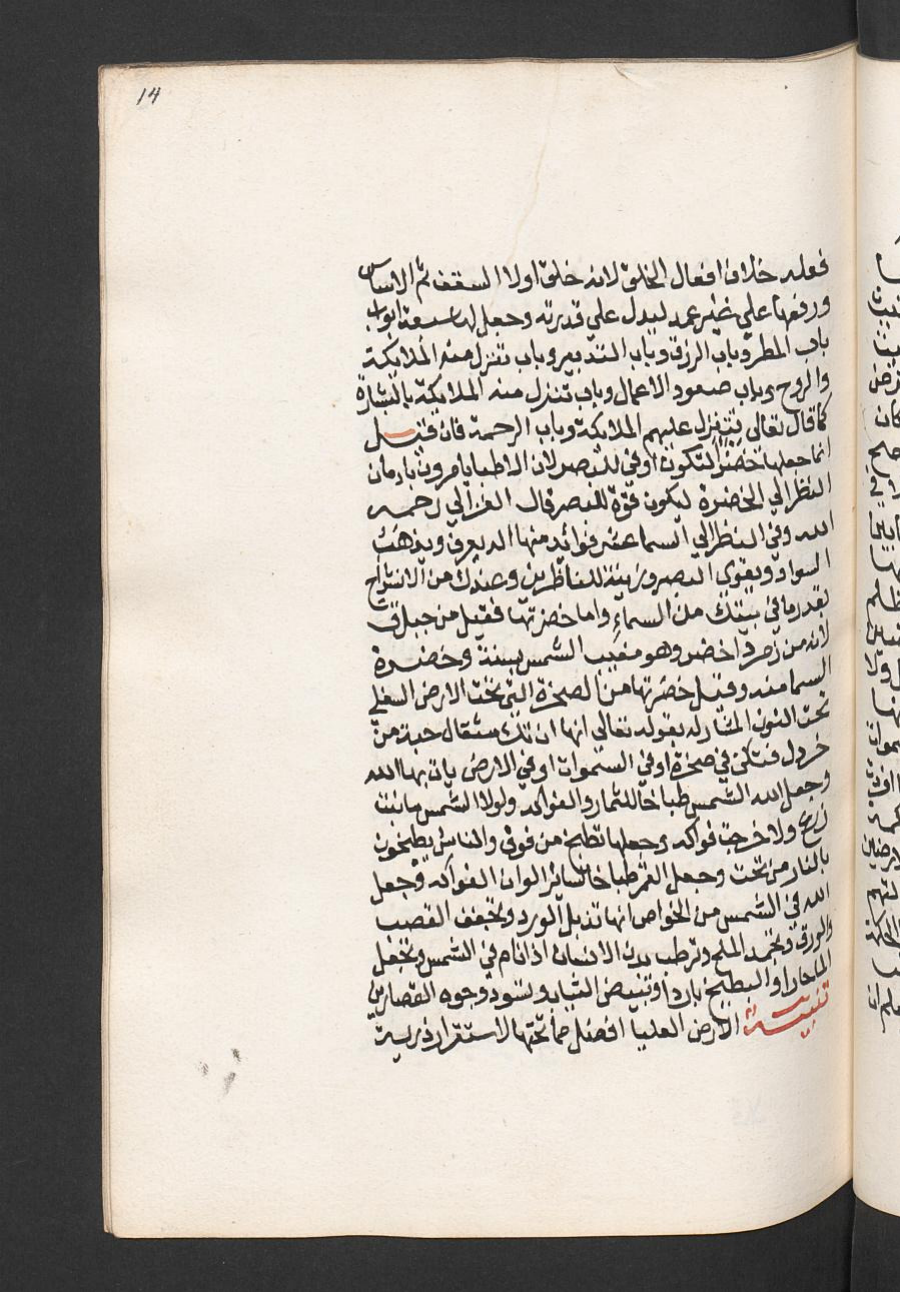 14
فعله خلاف افعال الخلق لانه خلق اولا السقف ثم الاساس
ورفعها علي غير عمد ليدل علي قدرته وجعل لها سبعة ابواب
باب المطر وباب الرزق وباب التدبير وباب تنزل منه الملايكة
والروح وباب صعود الاعمال وباب تنزل منه الملايكة بالبشارة
كما قال تعالى تتنزل عليهم الملايكة وباب الرحمة فان قيل
انما جعلها خضرا لتكون اوفي للبصر لان الاطبا يامرون بادمان
النظر الي الخضرة ليكون قوة للبصر قال الغزالي رحمه
الله وفي النظر الي السما عشر فوائد منها ويذهب
السواد ويقوي البصر وزينة للناظرين وعندك من الانشراح
بقدر ما في بيتك من السماء واما خضرتها فقيل من جبل ق
لانه من زمرد اخضر وهو مغيب الشمس بسنة وخضرة
السما منه وقيل خضرتها من الصخرة التي تحت الارض السفلي
تحت النون المشار له بقوله تعالى انها ان تك مثقال حبة من
خردل فتكن في صخرة اوفي السموات اوفي الارض يات بها الله
وجعل الله الشمس طباخا للثمار والفواكه ولولا الشمس ما نبت
زرع ولا خرجت فواكه وجعلها تطبخ من فوق والناس يطبخون
بالنار من تحت وجعل القمر طباخا سائر الوان الفواكه وجعل
الله في الشمس من الخواص انها تذبل الورد وتجفف القصب
والورق وتجمد الملح وترطب بدن الانسان اذا نام في الشمس وتجعل
الما حارا والبطيخ باردا وتبيض الثياب وتسود وجوه القصارين
تنبيه الارض العليا افضل مما تحتها لاستقرار ذرية